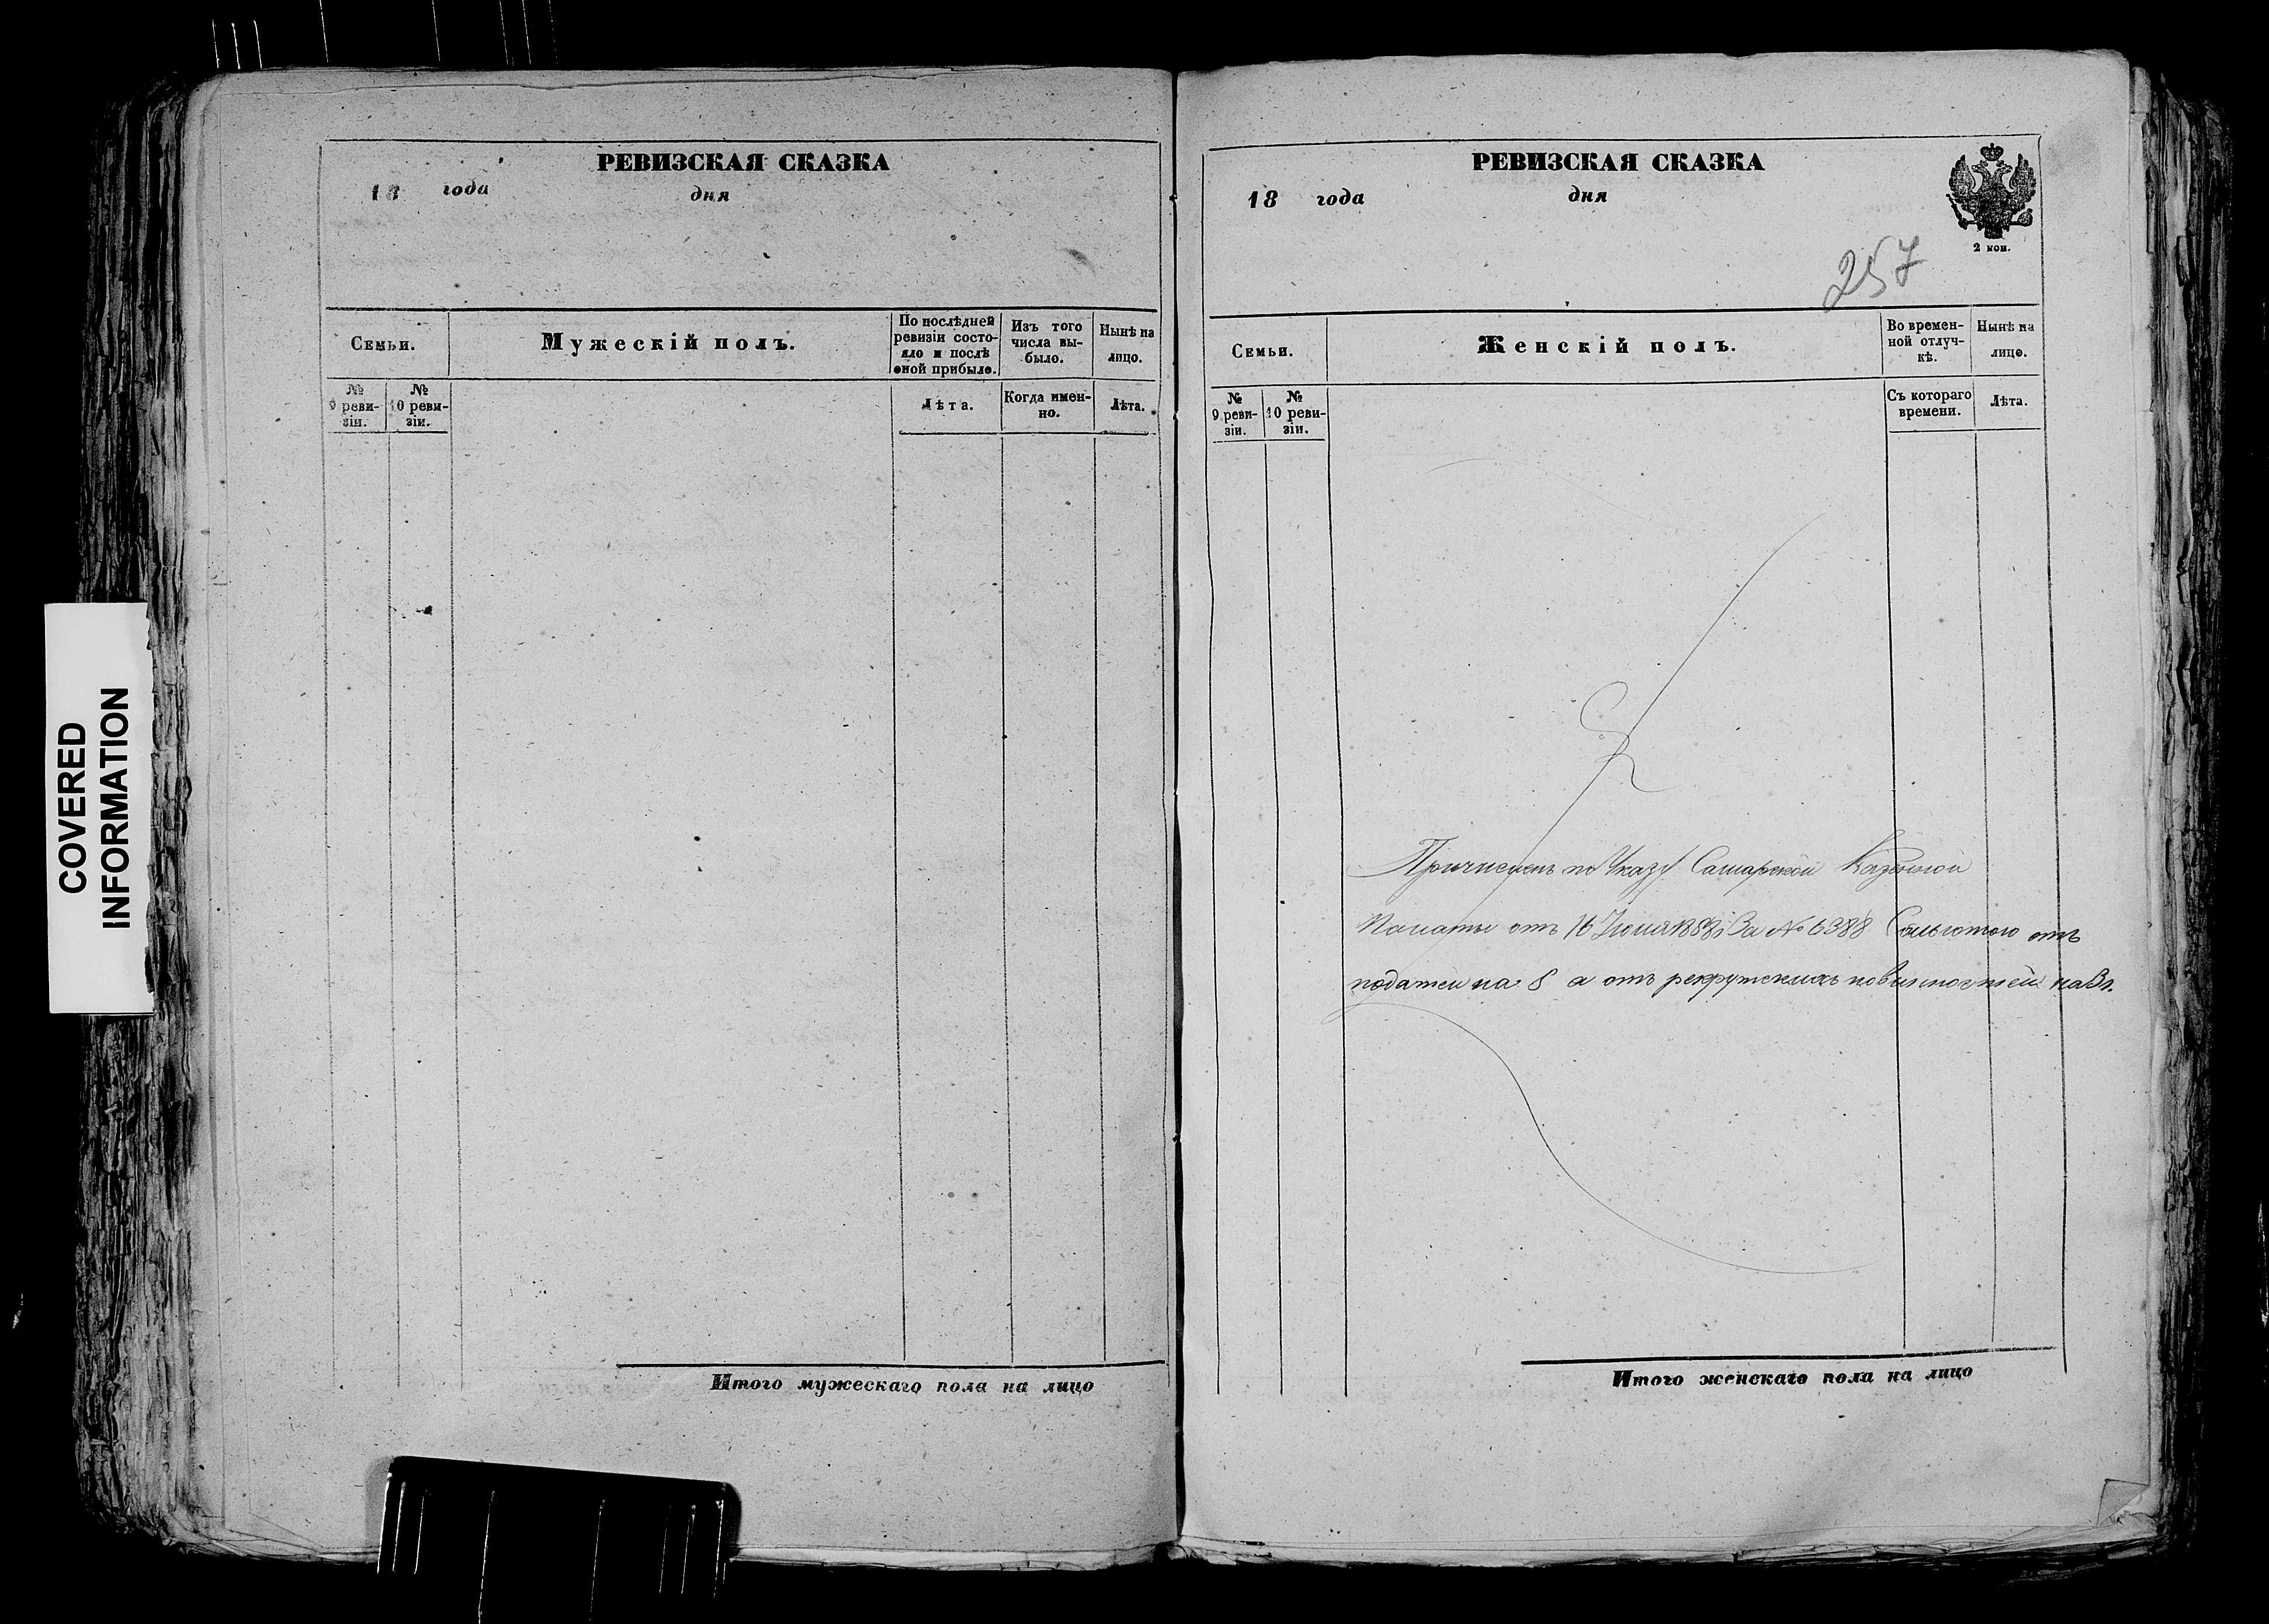 РЕВИЗСКАЯ СКАЗКА
18 года дня
Семьи.
Мужескій полъ.
По послѣдней ревизіи состояло и послѣ оной прибыло.
Изъ того числа выбыло.
Нынѣ на лицо.
№ 9 ревизіи.
№ 10 ревизіи.
Лѣта.
Когда именно.
Лѣта.
Итого мужескаго пола на лицо
РЕВИЗСКАЯ СКАЗКА
18 года дня
2 коп.
257
Семьи.
Женскій полъ.
Во временной отлучкѣ.
Нынѣ на лицо.
№ 9 ревизіи.
№ 10 ревизіи.
Съ котораго времени.
Лѣта.
Причисленъ по Указу Самарской Казенной
Палаты отъ 16 За № 6388 Сольготою отъ
податей на 8 а отъ рекрутскихъ повинностей на 3 г.
Итого женскаго пола на лицо
COVERED
INFORMATION